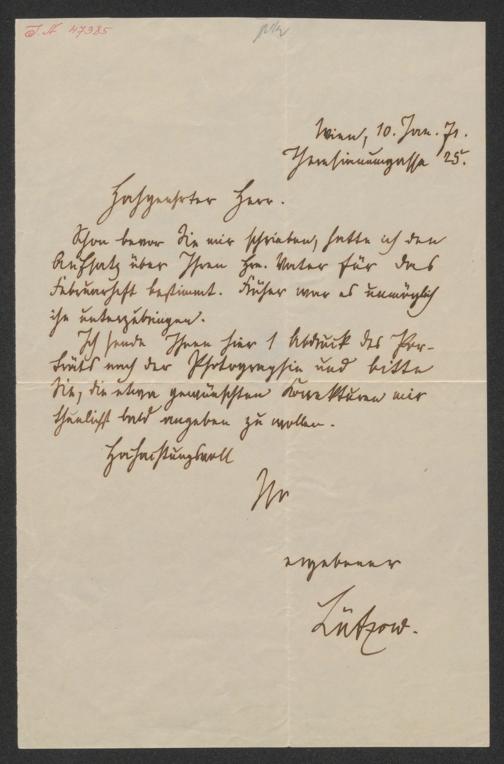 I. N. 47385
Wien, 10. Jan. 71.
Theresianumgasse 25.
Hochgeehrter Herr.
Schon bevor Sie mir schrieben, hatte ich den
Aufsatz über Ihren Hrn. Vater für das
Februarheft bestimmt. Früher war es unmöglich
ihn unterzubringen.
Ich sende Ihnen hier 1 Abdruck des Por-
träts nach der Photographie und bitte
Sie, die etwa gewünschten Correkturen mir
thunlichst bald angeben zu wollen.
Hochachtungsvoll
Ihr
ergebener
Lützow.